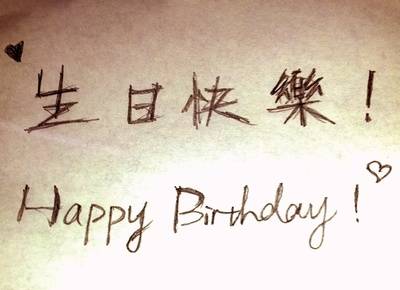 生日快樂！
Happy Birthday!